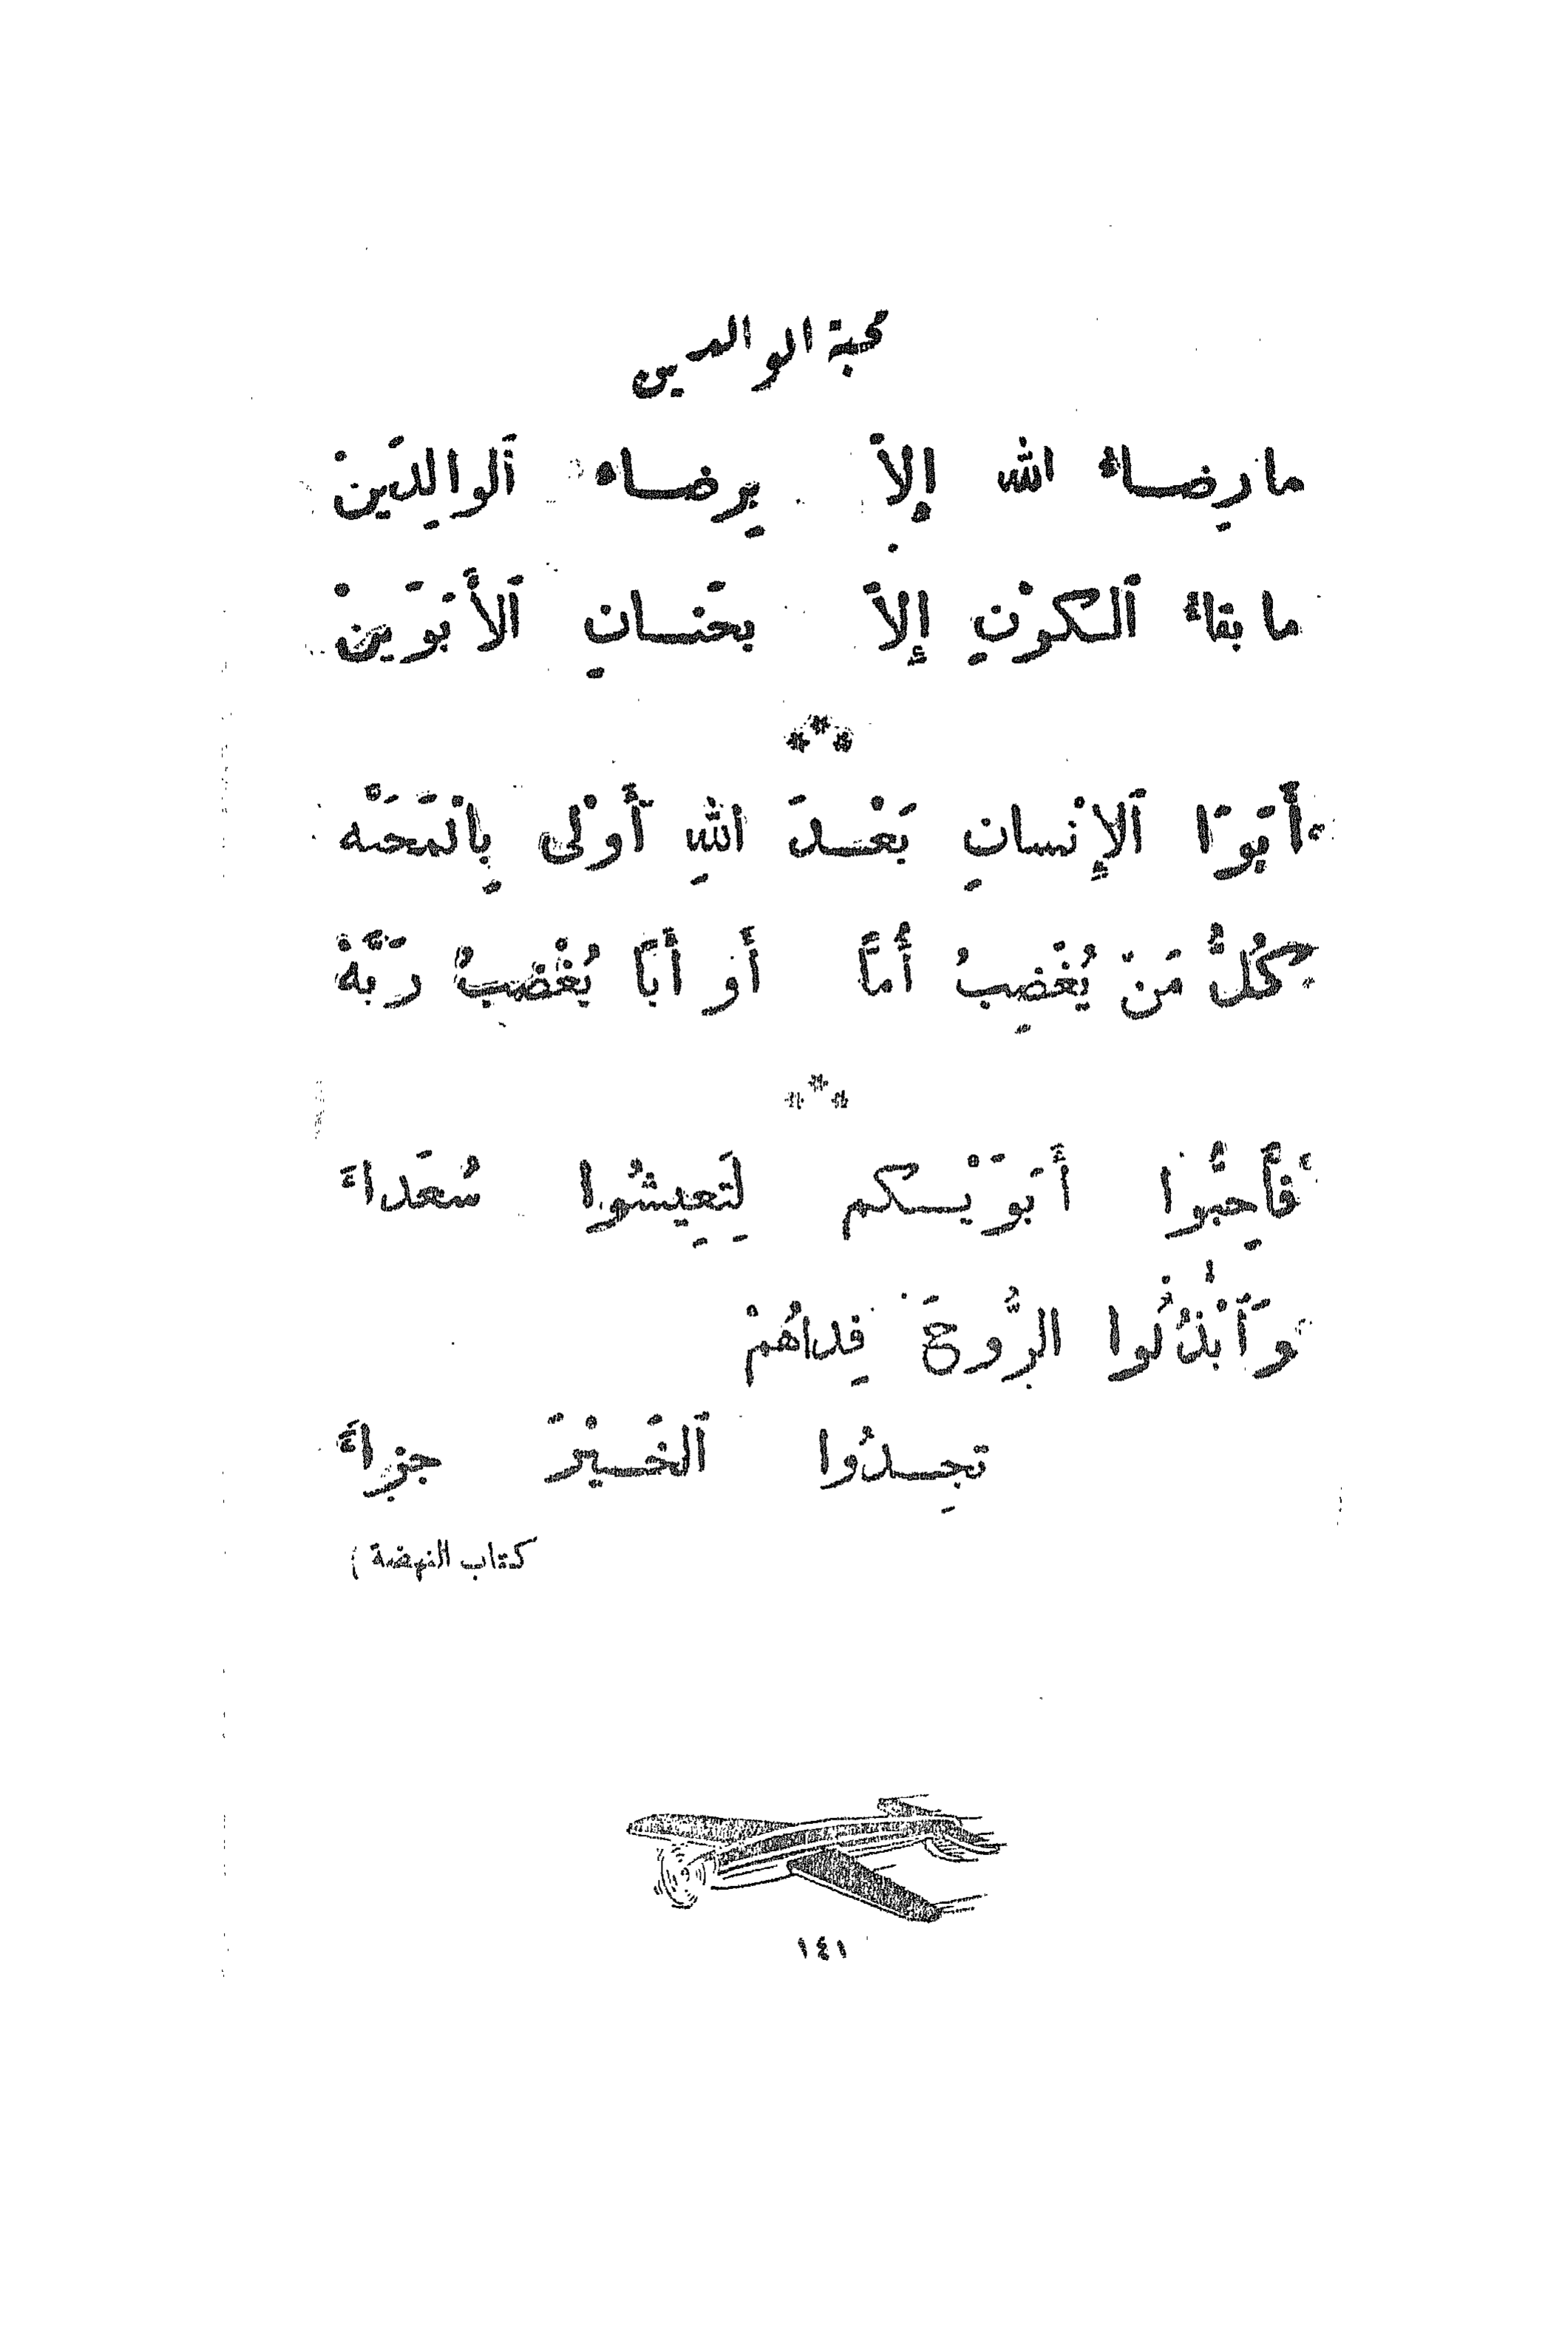 محبة الوالدين
ما رِضاءُ الله إلاَّ بِرضاء ٱلوالِدَينْ
ما بقاءُ ٱلكوْنِ إلاَّ بحَنانِ ٱلأَبَوَينْ
***
أَبَوَا ٱلإِنْسانِ بَعْدَ اللهِ أَوْلى بِالْمَحَبَّه
كُلُّ مَنْ يُغْضِبُ أُمَّاً أو أَبَاً يُغْضِبُ رَبَّهْ
***
فأَحِبُّوا أَبَوَيْكم لِتَعِيشُوا سُعَداءَ
وَٱبْذُلُوا الرُّوحَ فِداهُمْ
تجِدُوا ٱلخَيْرَ جزاءً
كتاب النهضة )
١٤١